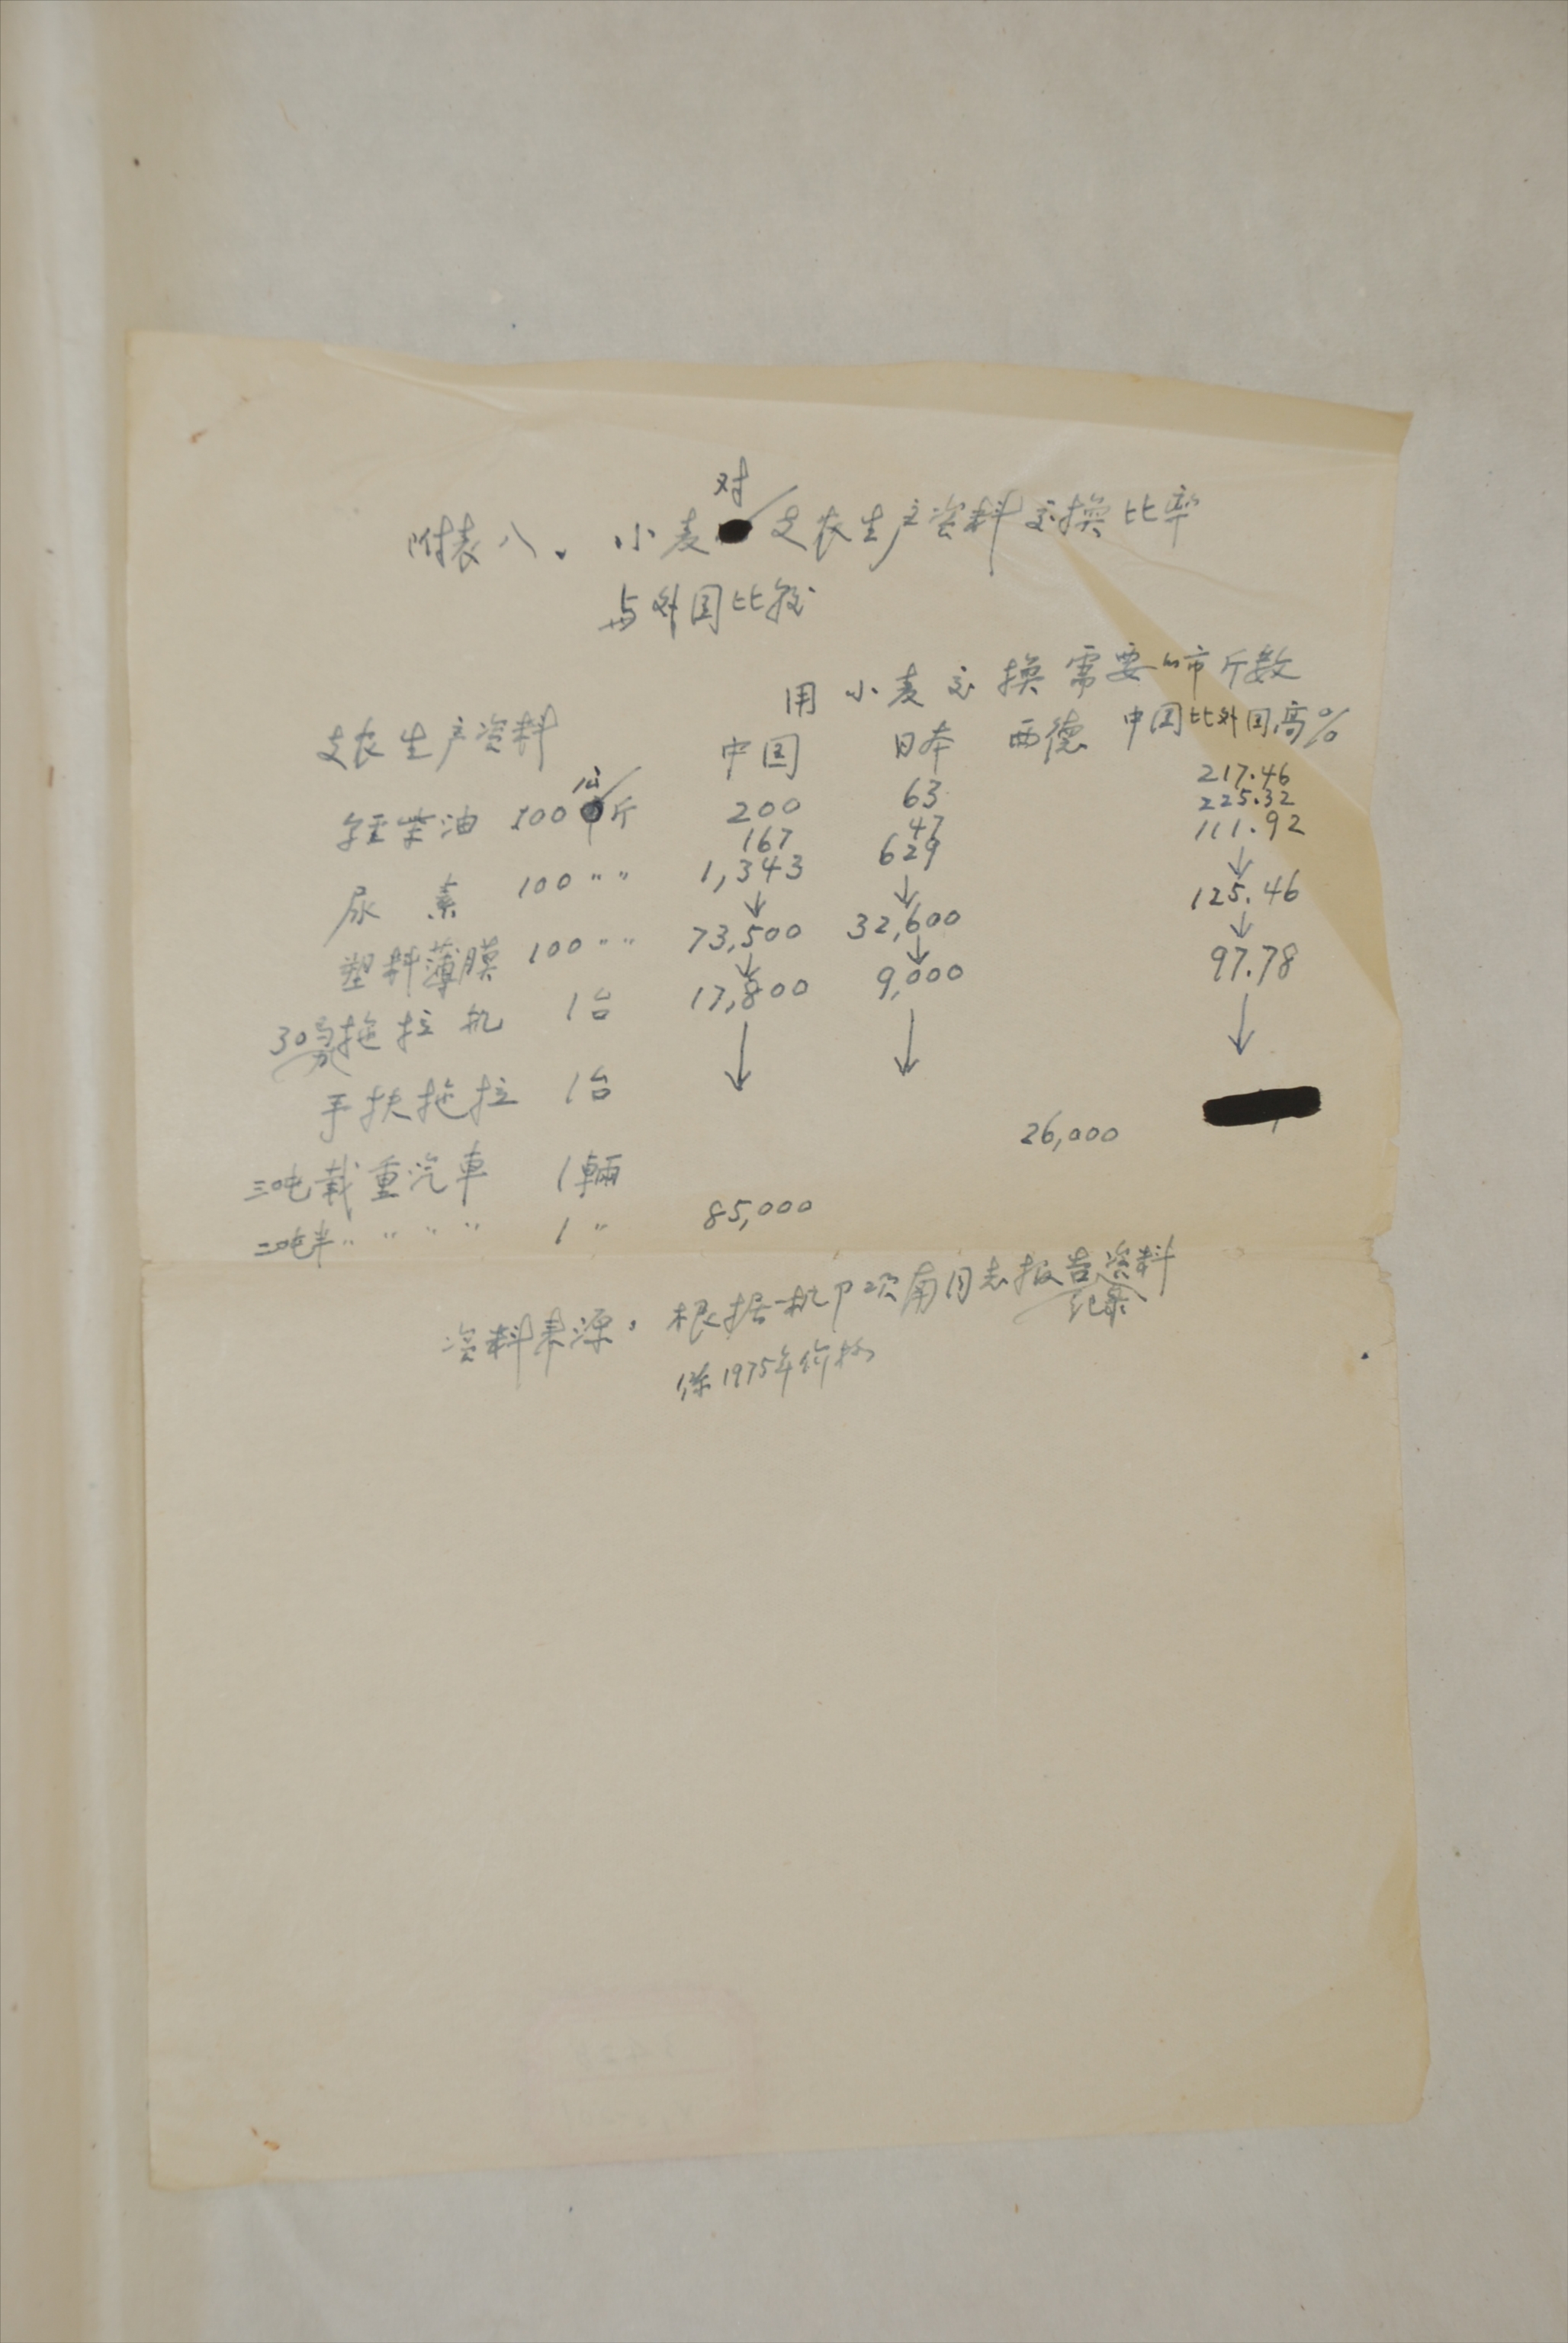 附表八、小麦对支农生产资料交换比率
与外国比较
用小麦交换需要的市斤数
支农生产资料 中国 日本 西德 中国比外国高%
轻柴油 100公斤 200 63 217.46
尿素 100〃〃 167 47 225.32
塑料薄膜 100〃〃 1,343 629 111.92
30马力拖拉机 1台 73,500 32,600 125.46
手扶拖拉 1台 17,800 9,000 97.78
三吨载重汽車 1輛 26,000
二吨半〃〃〃〃 1〃 85,000
资料来源：根据一机部项南同志报告资料
纪录
係1975年价格